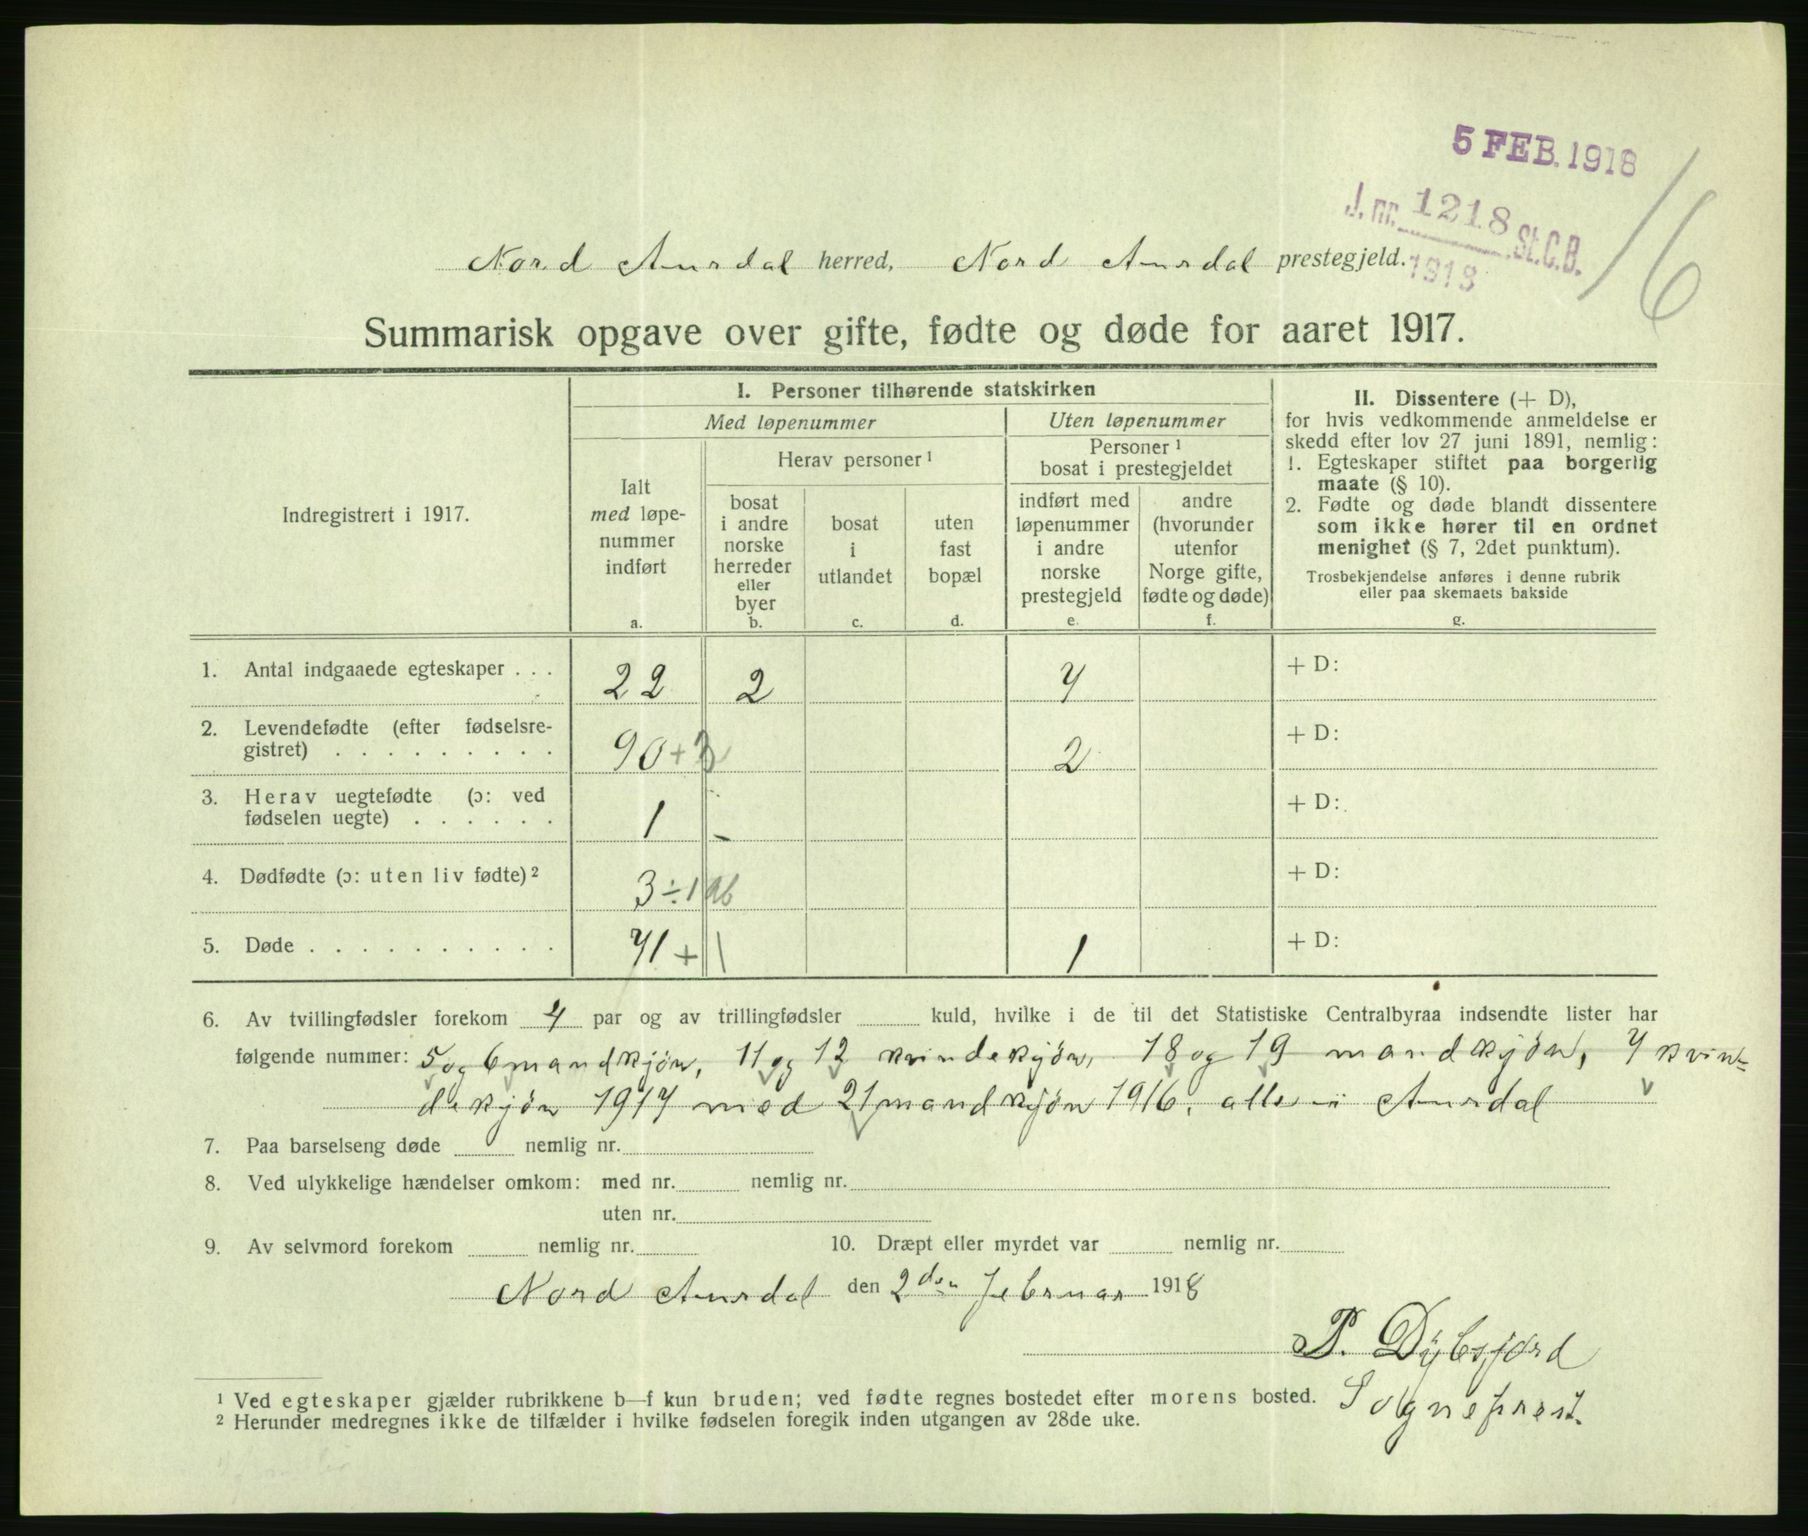 5 FEB. 1918
J. nr. 1218 St.C.B.
1918
16
Nord Aurdal herred, Nord Aurdal prestegjeld.
Summarisk opgave over gifte, fødte og døde for aaret 1917.
Indregistrert i 1917.
I. Personer tilhørende statskirken
Med løpenummer
Uten løpenummer
Ialt
med løpe-
nummer
indført
a.
Herav personer 1
bosat
i andre
norske
herreder
eller
byer
b.
bosat
i
utlandet
c.
uten
fast
bopæl
d.
Personer 1
bosat i prestegjeldet
indført med
løpenummer
i andre
norske
prestegjeld
e.
andre
(hvorunder
utenfor
Norge gifte,
fødte og døde)
f.
II. Dissentere (+ D),
for hvis vedkommende anmeldelse er
skedd efter lov 27 juni 1891, nemlig:
1. Egteskaper stiftet paa borgerlig
maate (§ 10).
2. Fødte og døde blandt dissentere
som ikke hører til en ordnet
menighet (§ 7, 2det punktum).
Trosbekjendelse anføres i denne rubrik
eller paa skemaets bakside
g.
1. Antal indgaaede egteskaper . . . 22 2 7 + D:
2. Levendefødte (efter fødselsre-
gistret) . . . . . . . . . 90 + 3 2 + D:
3. Herav uegtefødte (ɔ: ved
fødselen uegte) . . . . . . 1 - + D:
4. Dødfødte (ɔ: uten liv fødte) 2 3 ÷ 1 ab + D:
5. Døde . . . . . . . . . . 71 + 1 1 + D:
6. Av tvillingfødsler forekom 4 par og av trillingfødsler kuld, hvilke i de til det Statistiske Centralbyraa indsendte lister har
følgende nummer: 5 og 6 mandkjøn, 11 og 12 kvindekjøn, 18 og 19 mandkjøn, 7 kvin-
dekjøn 1917 med 21 mandkjøn 1916, alle i Aurdal
7. Paa barselseng døde nemlig nr.
8. Ved ulykkelige hændelser omkom: med nr. nemlig nr.
uten nr.
9. Av selvmord forekom nemlig nr. 10. Dræpt eller myrdet var nemlig nr.
Nord Aurdal den 2den Februar 1918
P. Dybsjord
Sogneprest.
1 Ved egteskaper gjælder rubrikkene b—f kun bruden; ved fødte regnes bostedet efter morens bosted.
2 Herunder medregnes ikke de tilfælder i hvilke fødselen foregik inden utgangen av 28de uke.